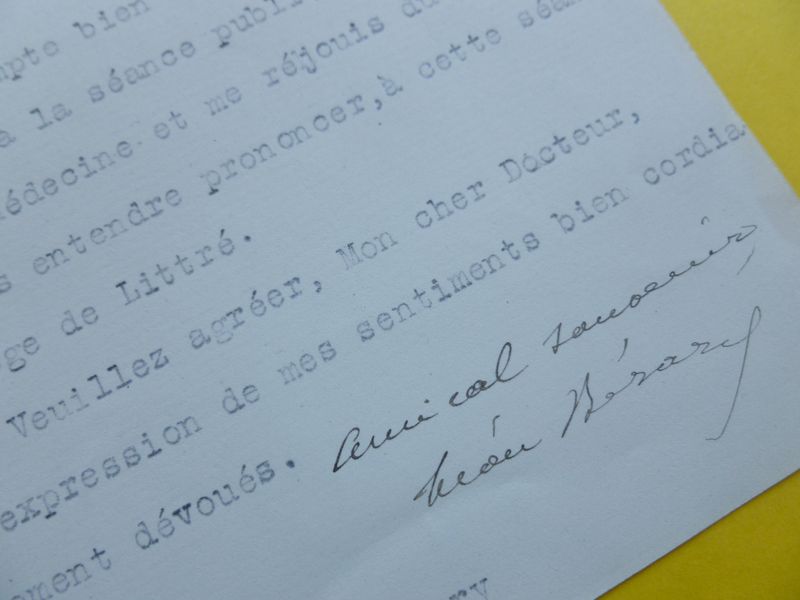 mpte bien
à la séance publi
médecine et me réjouis du
s entendre prononcer,à cette séan
ge de Littré.
Veuillez agréer, Mon cher Docteur,
expression de mes sentiments bien cordia
ement dévoués.
amical souvenir,
Léon Bérard
ry